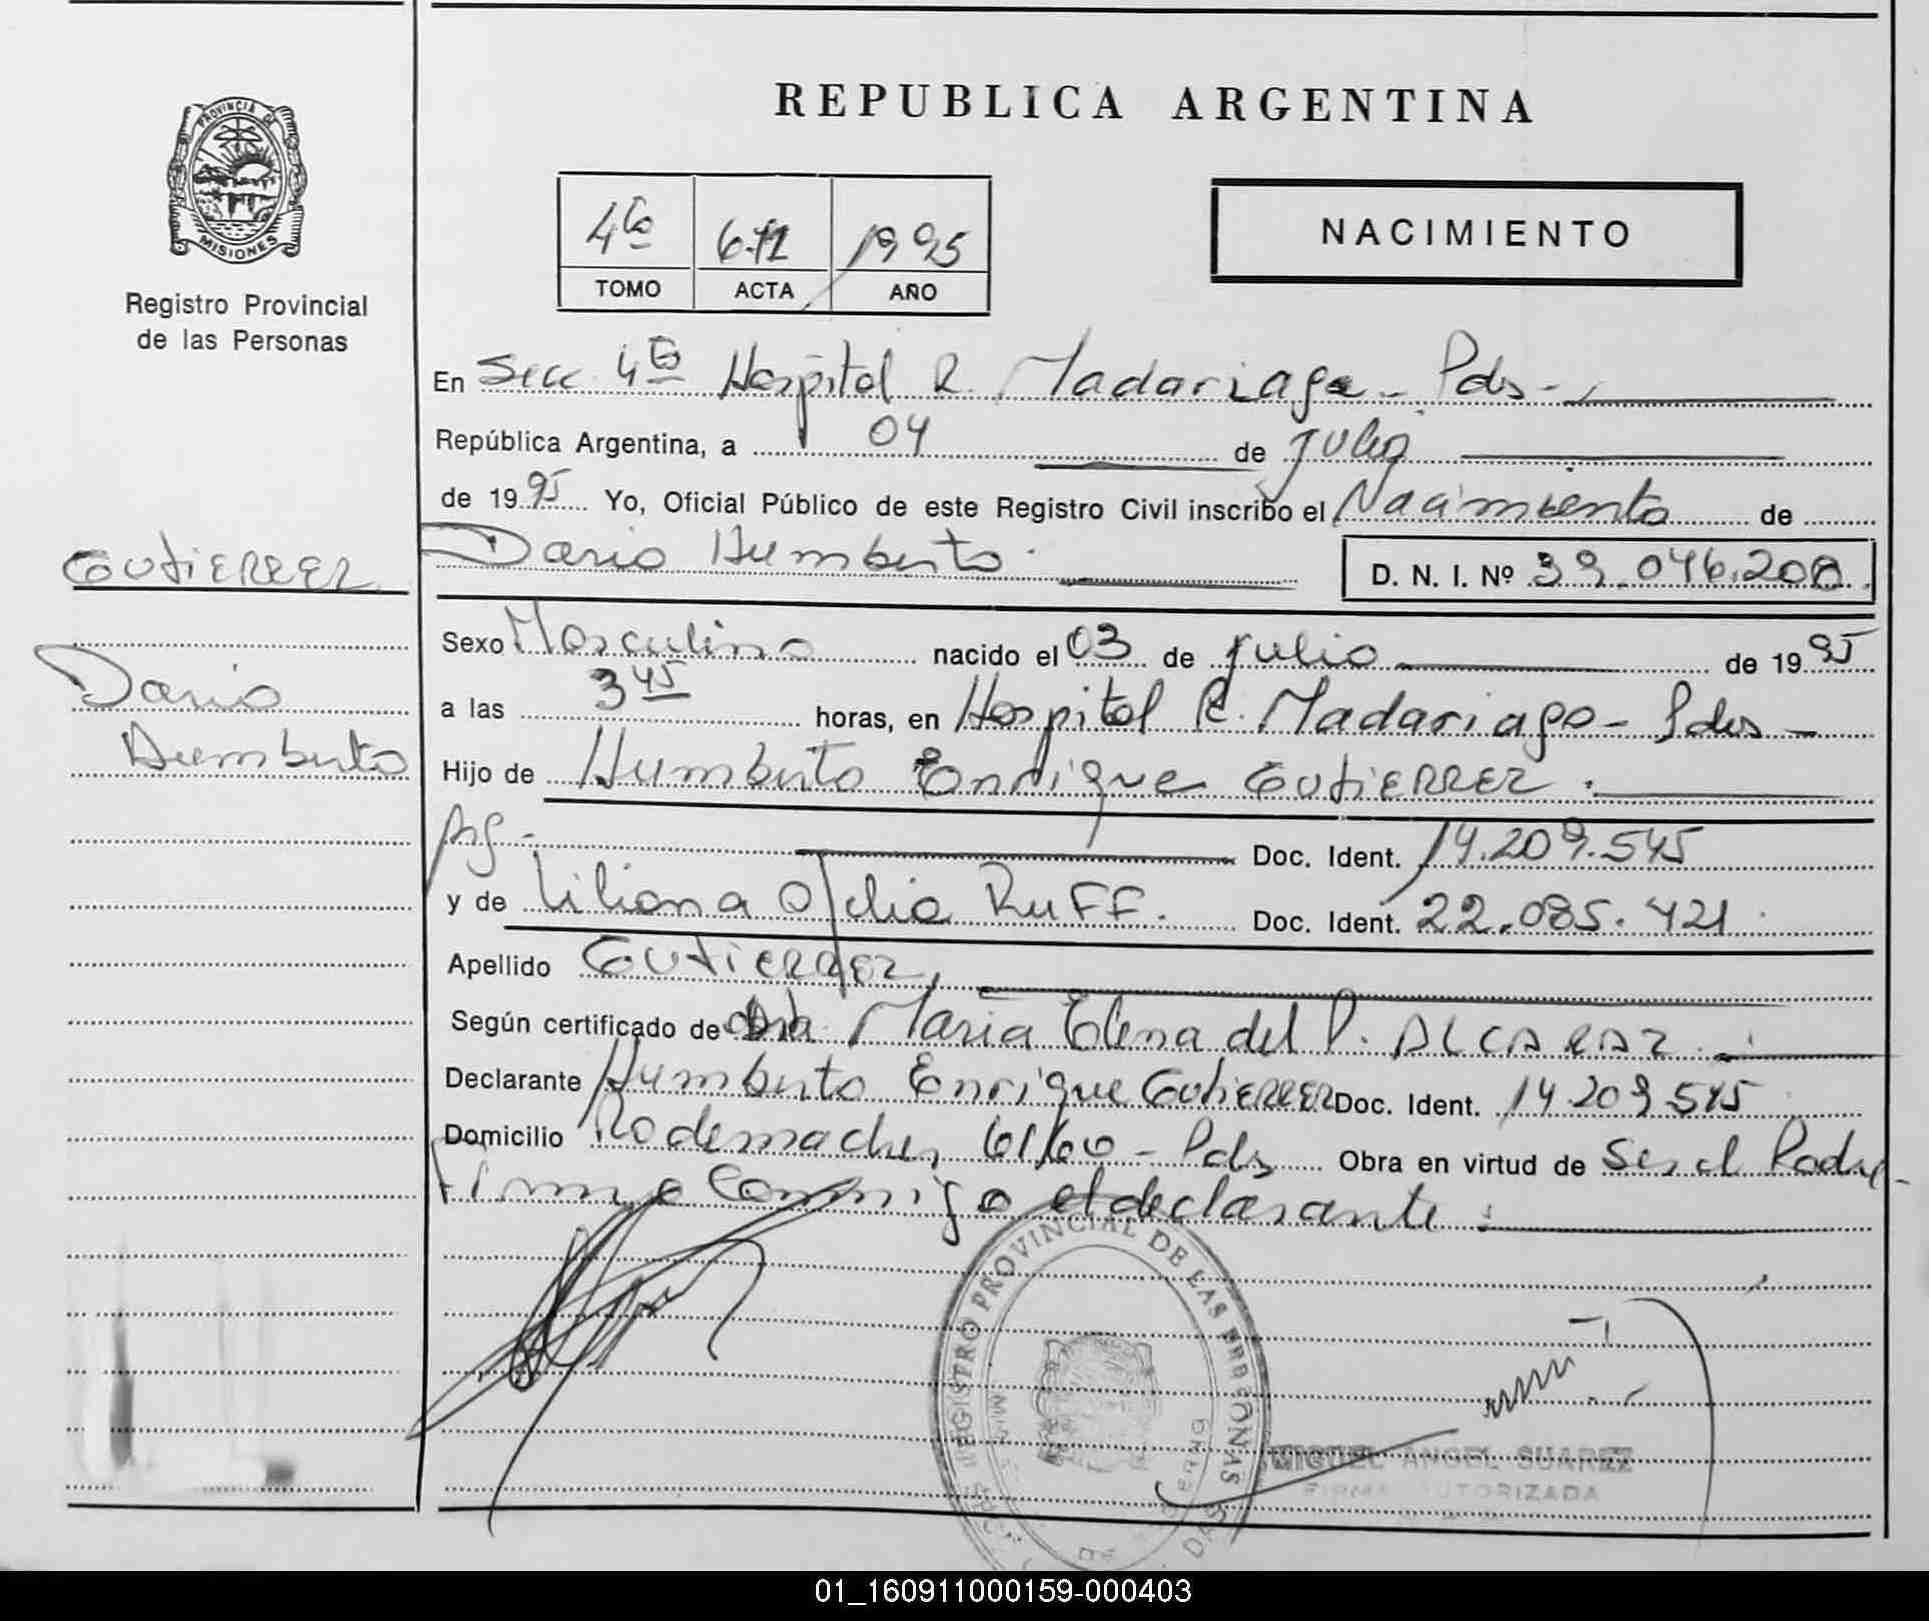 REPUBLICA ARGENTINA
PROVINCIA DE
MISIONES
Registro Provincial
de las Personas
4to 1995
TOMO ACTA AÑO
NACIMIENTO
En Secc. 4ta Hospital R. Madariaga - Pds -
República Argentina, a 04 de julio
de 1995 Yo, Oficial Público de este Registro Civil inscribo el Nacimiento de
Dario Humberto D. N. I. Nº 39.046.208
GUTIERREZ
Dario
Humberto
Sexo Masculino nacido el 03 de julio de 1995
a las 3 45 horas, en Hospital R. Madariaga - Pdas -
Hijo de Humberto Enrique GUTIERREZ.
Arg - Doc. Ident. 14.209.545
y de Liliana Ofelia RUFF. Doc. Ident. 22.085.421
Apellido GUTIERREZ,
Según certificado de Dra. Maria Elena del P. ALCARAZ.
Declarante Humberto Enrique GUTIERREZ Doc. Ident. 14.209.545
Domicilio Rademacher 6160 - Pds Obra en virtud de Ser el Padre -
Firma Conmigo el declarante.
REGISTRO PROVINCIAL DE LAS PERSONAS
MIGUEL ANGEL SUAREZ
FIRMA AUTORIZADA
01_160911000159-000403